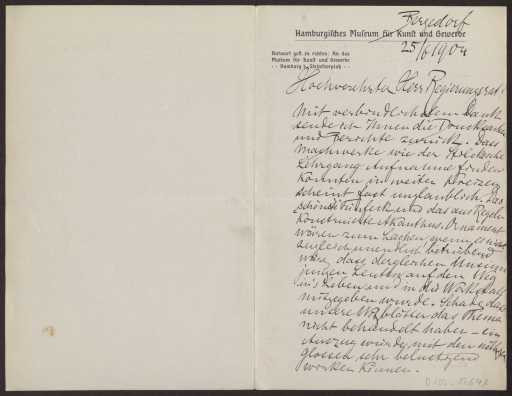 Bergedorf
Hamburgisches Museum für Kunst und Gewerbe
25/6 1904
Antwort gefl. zu richten: An das
Museum für Kunst und Gewerbe
- - Hamburg 5, Steintorplatz - -
Hochverehrter Herr Regierungsrat!
Mit verbindlichstem Dank
sende ich Ihnen die Drucksachen
und Berichte zurück. Dass
Machwerke wie der
Lehrgang Aufnahme finden
konnten in weiten Kreisen
scheint fast unglaublich. Das
schöne Fünfeck und das aus Regeln
konstruierte Akanthus-Ornament
wären zum Lachen, wenn es nicht
zugleich unendlich betrübend
wäre, dass dergleichen Unsinn
jungen Leuten auf den Weg
in's Leben und in die Werkstatt
mitgegeben wurde. Schade, dass
unsere Witzblätter das Thema
nicht behandelt haben - ein
Auszug würde, mit den nötigen
Glossen, sehr belustigend
wirken können.